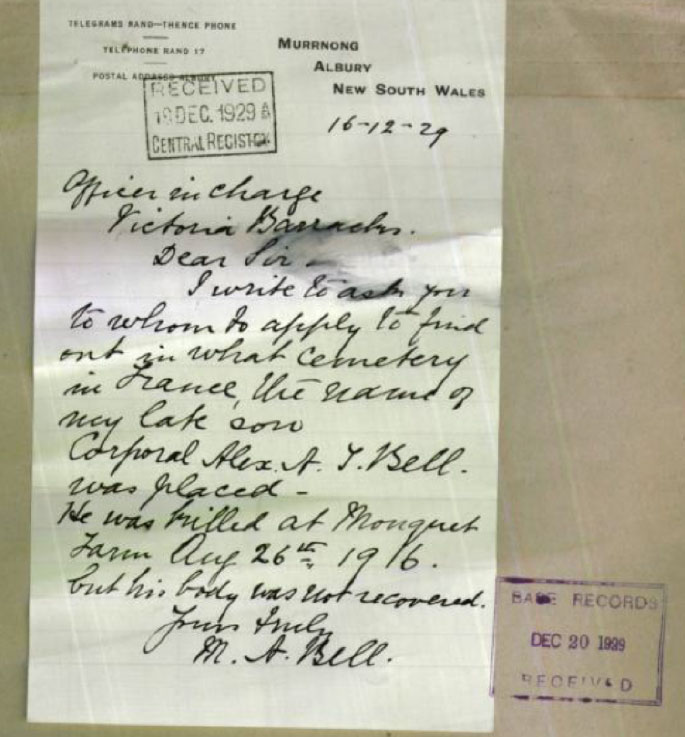 TELEGRAMS RAND—THENCE PHONE
TELEPHONE RAND 17
POSTAL ADDRESS ALBURY
MURRNONG
ALBURY
NEW SOUTH WALES
RECEIVED
19 DEC. 1929
CENTRAL REGISTRY
16-12-29
Officer in charge
Victoria Barracks.
Dear Sir -
I write to ask you
to whom to apply to find
out in what cemetery
in France, the name of
my late son
Corporal Alex. A. J. Bell.
was placed -
He was killed at Mouquet
Farm Aug 26th 1916.
but his body was not recovered.
Yours truly
M. A. Bell.
BASE RECORDS
DEC 20 1929
RECEIVED